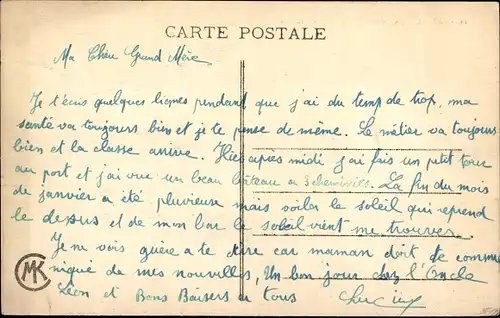 CARTE POSTALE
Ma Chère Grand Mère
Je t'écris quelques lignes pendant que j'ai du temps de trop, ma
santé va toujours bien et je te pense de même. Le métier va toujours
bien et la classe arrive. Hier après midi j'ai fais un petit tour
au port et j'ai vue un beau bateau a La fin du mois
de janvier a été pluvieuse mais voiler le soleil qui reprend
le dessus et de mon bar le soleil vient me trouver.
Je ne vois guère a te dire car maman doit de commu
niqué de mes nouvelles, Un bon jour chez l'Oncle
Léon et Bons Baisers a tous
MK